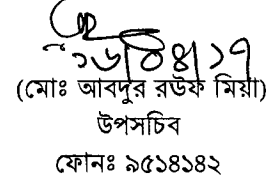 ১৬/০৪/১৭
(মোঃ আবদুর রউফ মিয়া)
উপসচিব
ফোনঃ ৯৫১৪১৪২